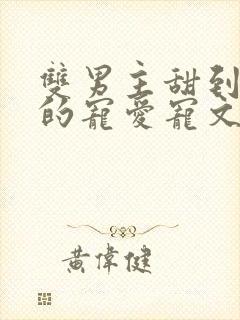 雙男主甜到
的寵愛寵文
黃偉健